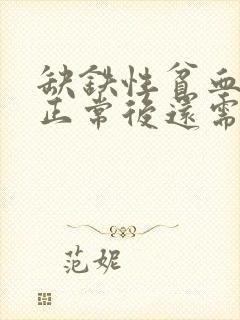 缺鉄性貧血
正常後還需
范妮